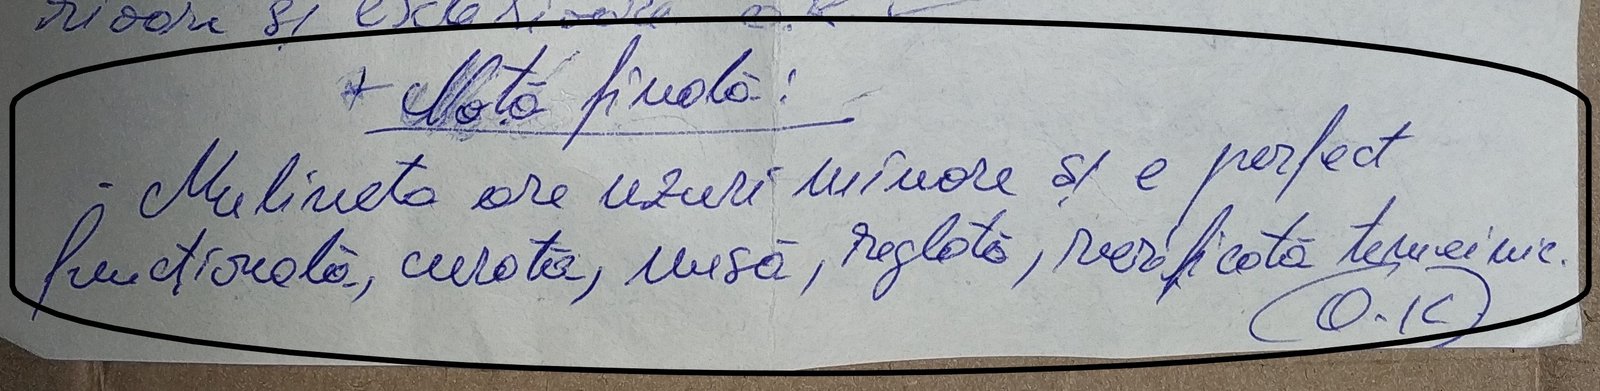 și
+ Notă finală:
- Mulineta are uzuri minore și e perfect
funcțională, curată, unsă, reglată, verificată temeinic.
O.K